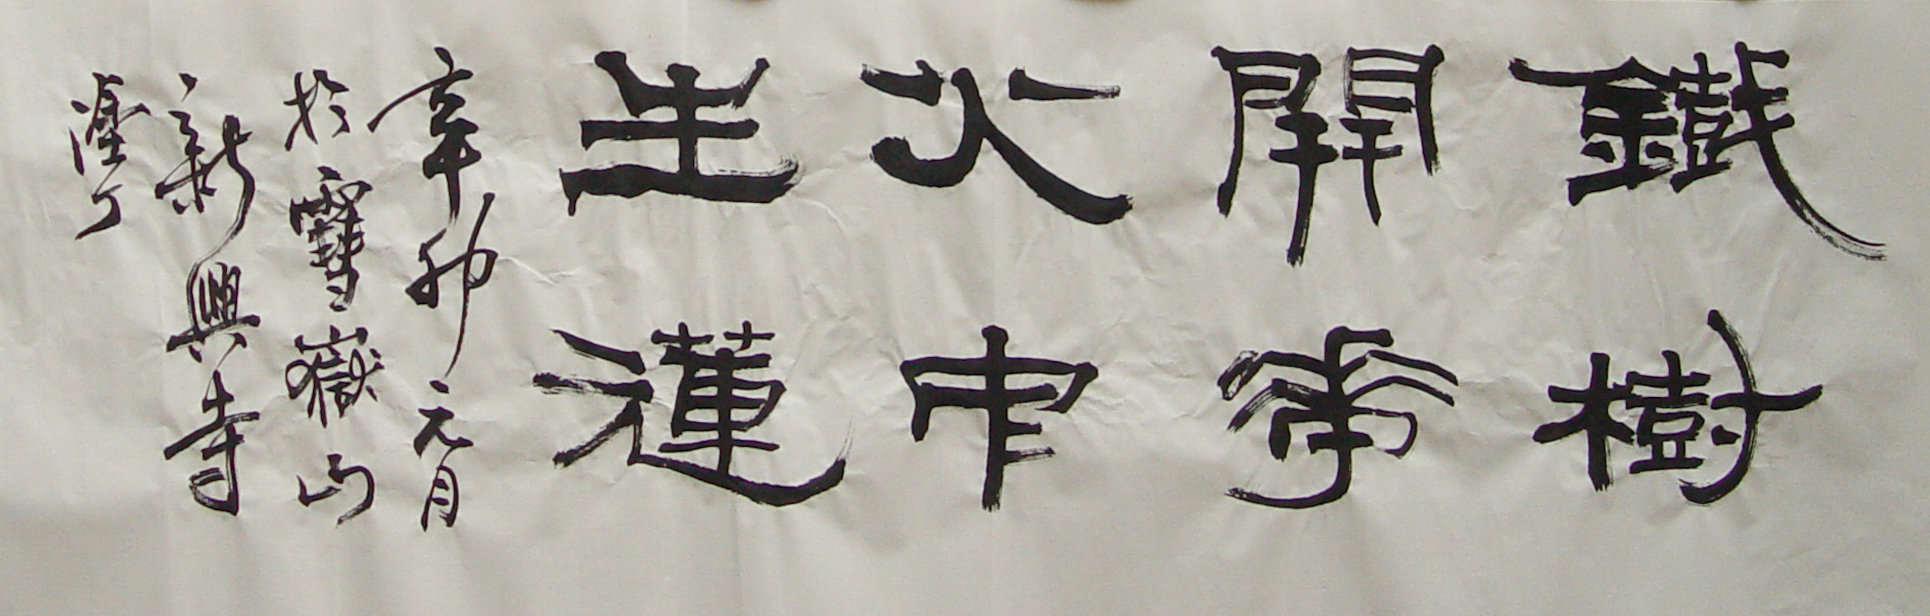 鐵樹
開花
火中
生蓮
辛卯元月
於雪嶽山
新興寺